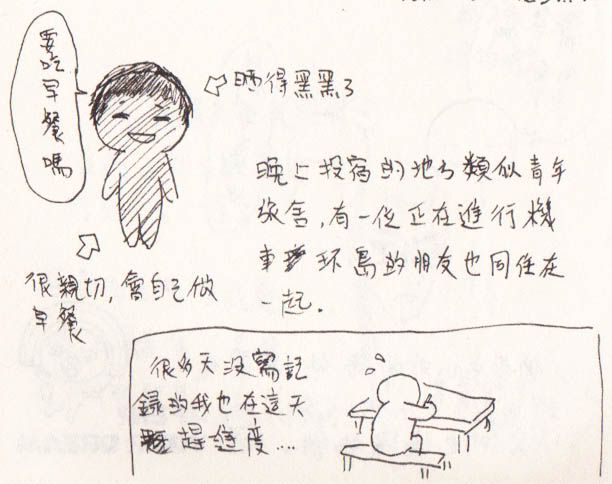 要吃早餐嗎
晒得黑黑了
晚上投宿的地方類似青年
旅舍,有一位正在進行機
車環島的朋友也同住在
一起.
很親切,會自己做
早餐
很多天沒寫記
錄的我也在這天
趕進度...